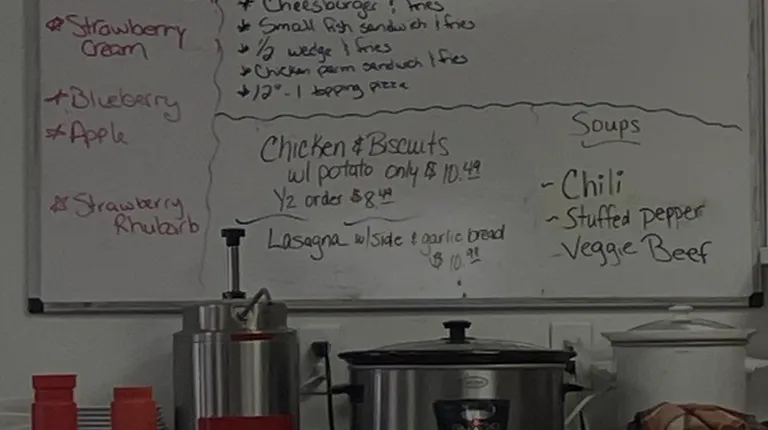 * Strawberry
Cream
* Blueberry
* Apple
* Strawberry
Rhubarb
* Cheesburger & fries
* Small fish sandwich & fries
* 1/2 wedge & fries
* Chicken parm sandwich & fries
* 12" - 1 topping pizza
Chicken & Biscuits
w/ potato only $10.49
1/2 order $8.49
Lasagna w/ side & garlic bread
$10.99
Soups
- Chili
- Stuffed pepper
- Veggie Beef